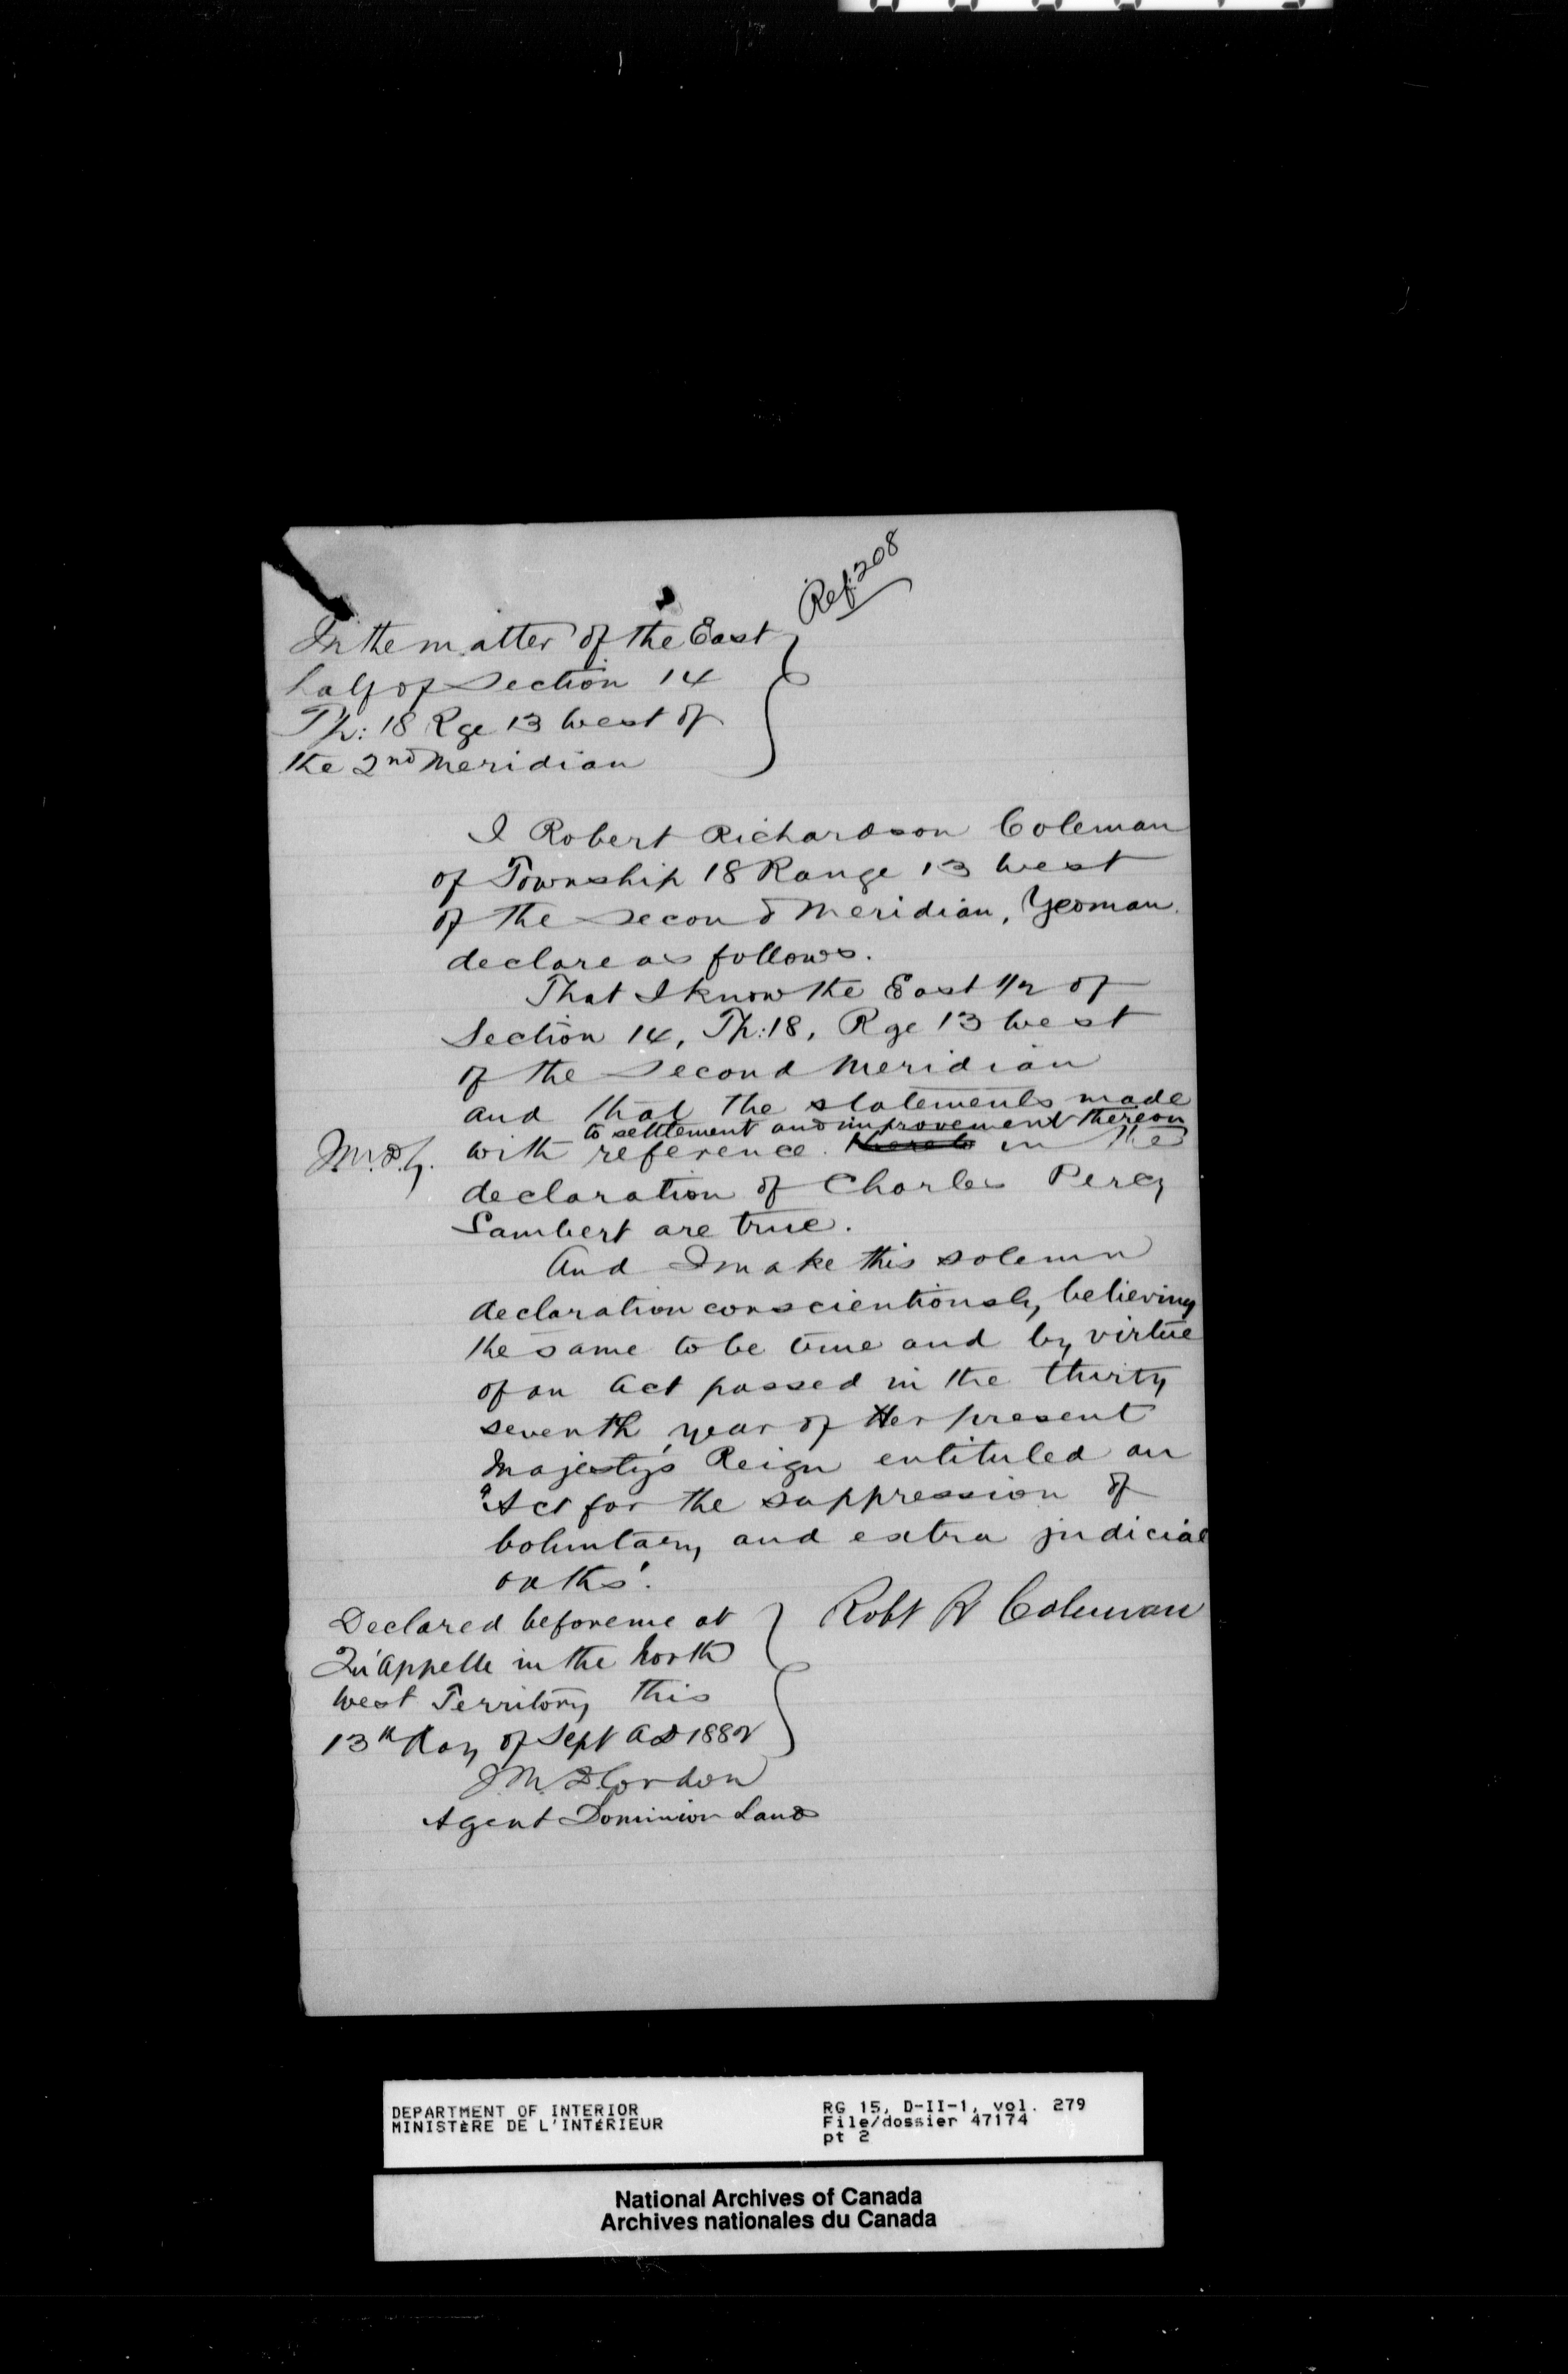 Ref. 208
In the matter of the East
half of Section 14
Tp: 18 Rge 13 West of
the 2nd Meridian
I Robert Richardson Coleman
of Township 18 Range 13 West
of the Second Meridian, Yeoman.
declare as follows.
That I know the East 1/2 of
Section 14, Tp: 18, Rge 13 West
of the Second Meridian
and that the statements made
to settlement and improvement thereon
J.M.D.G. with reference thereto in the
declaration of Charles Percy
Lambert are true.
And I make this solemn
declaration conscientiously believing
the same to be true and by virtue
of an Act passed in the thirty
seventh year of Her present
Majesty's Reign entituled an
"Act for the suppression of
Voluntary and extra judicial
oaths".
Declared before me at
Qu'Appelle in the North
West Territory this
13th Day of Sept AD 1882
Robt R Coleman
J. M. D. Gordon
Agent Dominion Lands
DEPARTMENT OF INTERIOR
MINISTÈRE DE L'INTÉRIEUR
RG 15, D-II-1, vol. 279
File/dossier 47174
pt 2
National Archives of Canada
Archives nationales du Canada